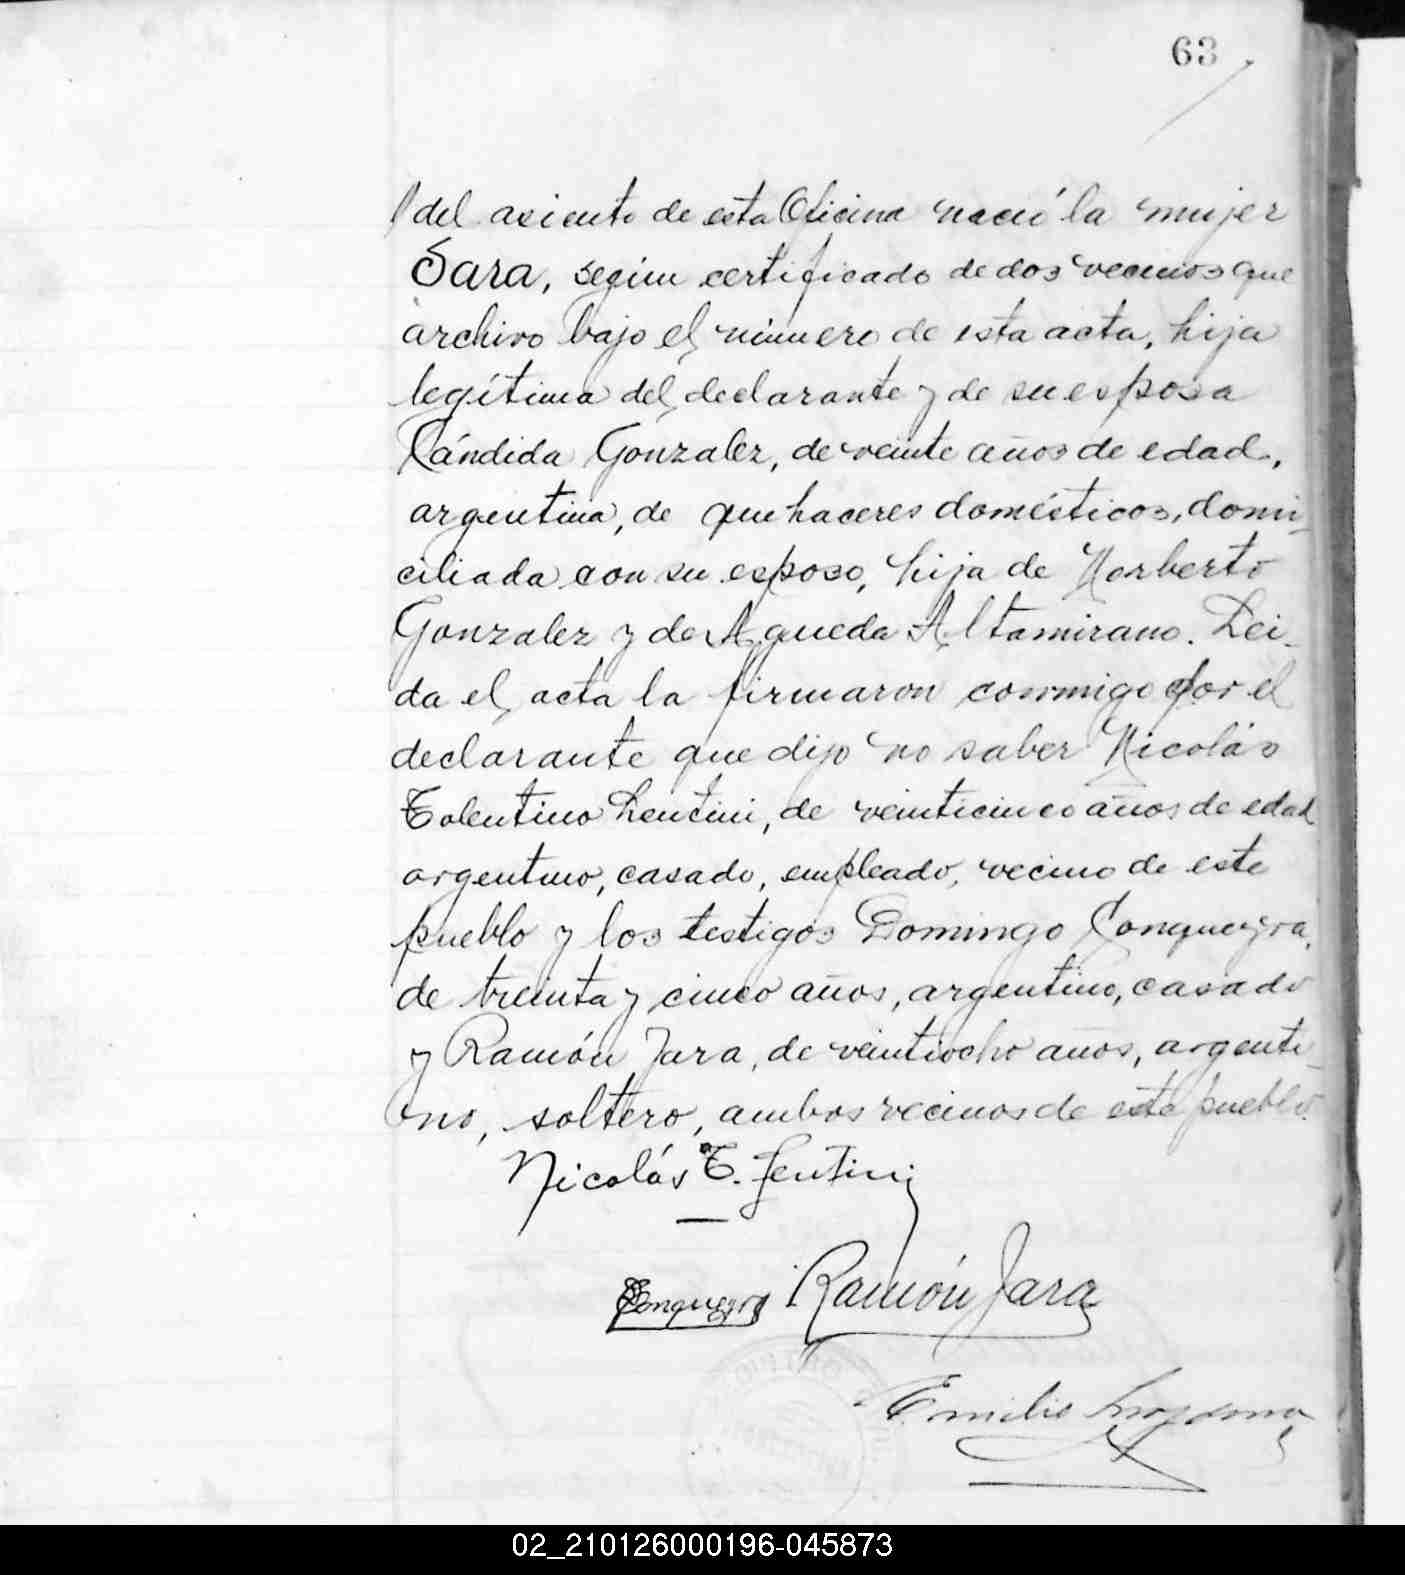 63
del asiento de esta Oficina nació la mujer
Sara, según certificado de dos vecinos que
archivo bajo el número de esta acta, hija
legítima del declarante y de su esposa
Cándida Gonzalez, de veinte años de edad,
argentina, de quehaceres domésticos, domi-
ciliada con su esposo, hija de Norberto
Gonzalez y de Agueda Altamirano. Lei-
da el acta la firmaron conmigo por el
declarante que dijo no saber Nicolás
Tolentino Lentini, de veinticinco años de edad
argentino, casado, empleado, vecino de este
pueblo y los testigos Domingo Conqueyra,
de treinta y cinco años, argentino, casado
y Ramón Jara, de veintiocho años, argenti-
no, soltero, ambos vecinos de este pueblo.
Nicolás T. Lentini
Conqueyra Ramón Jara
Emilio
02_210126000196-045873